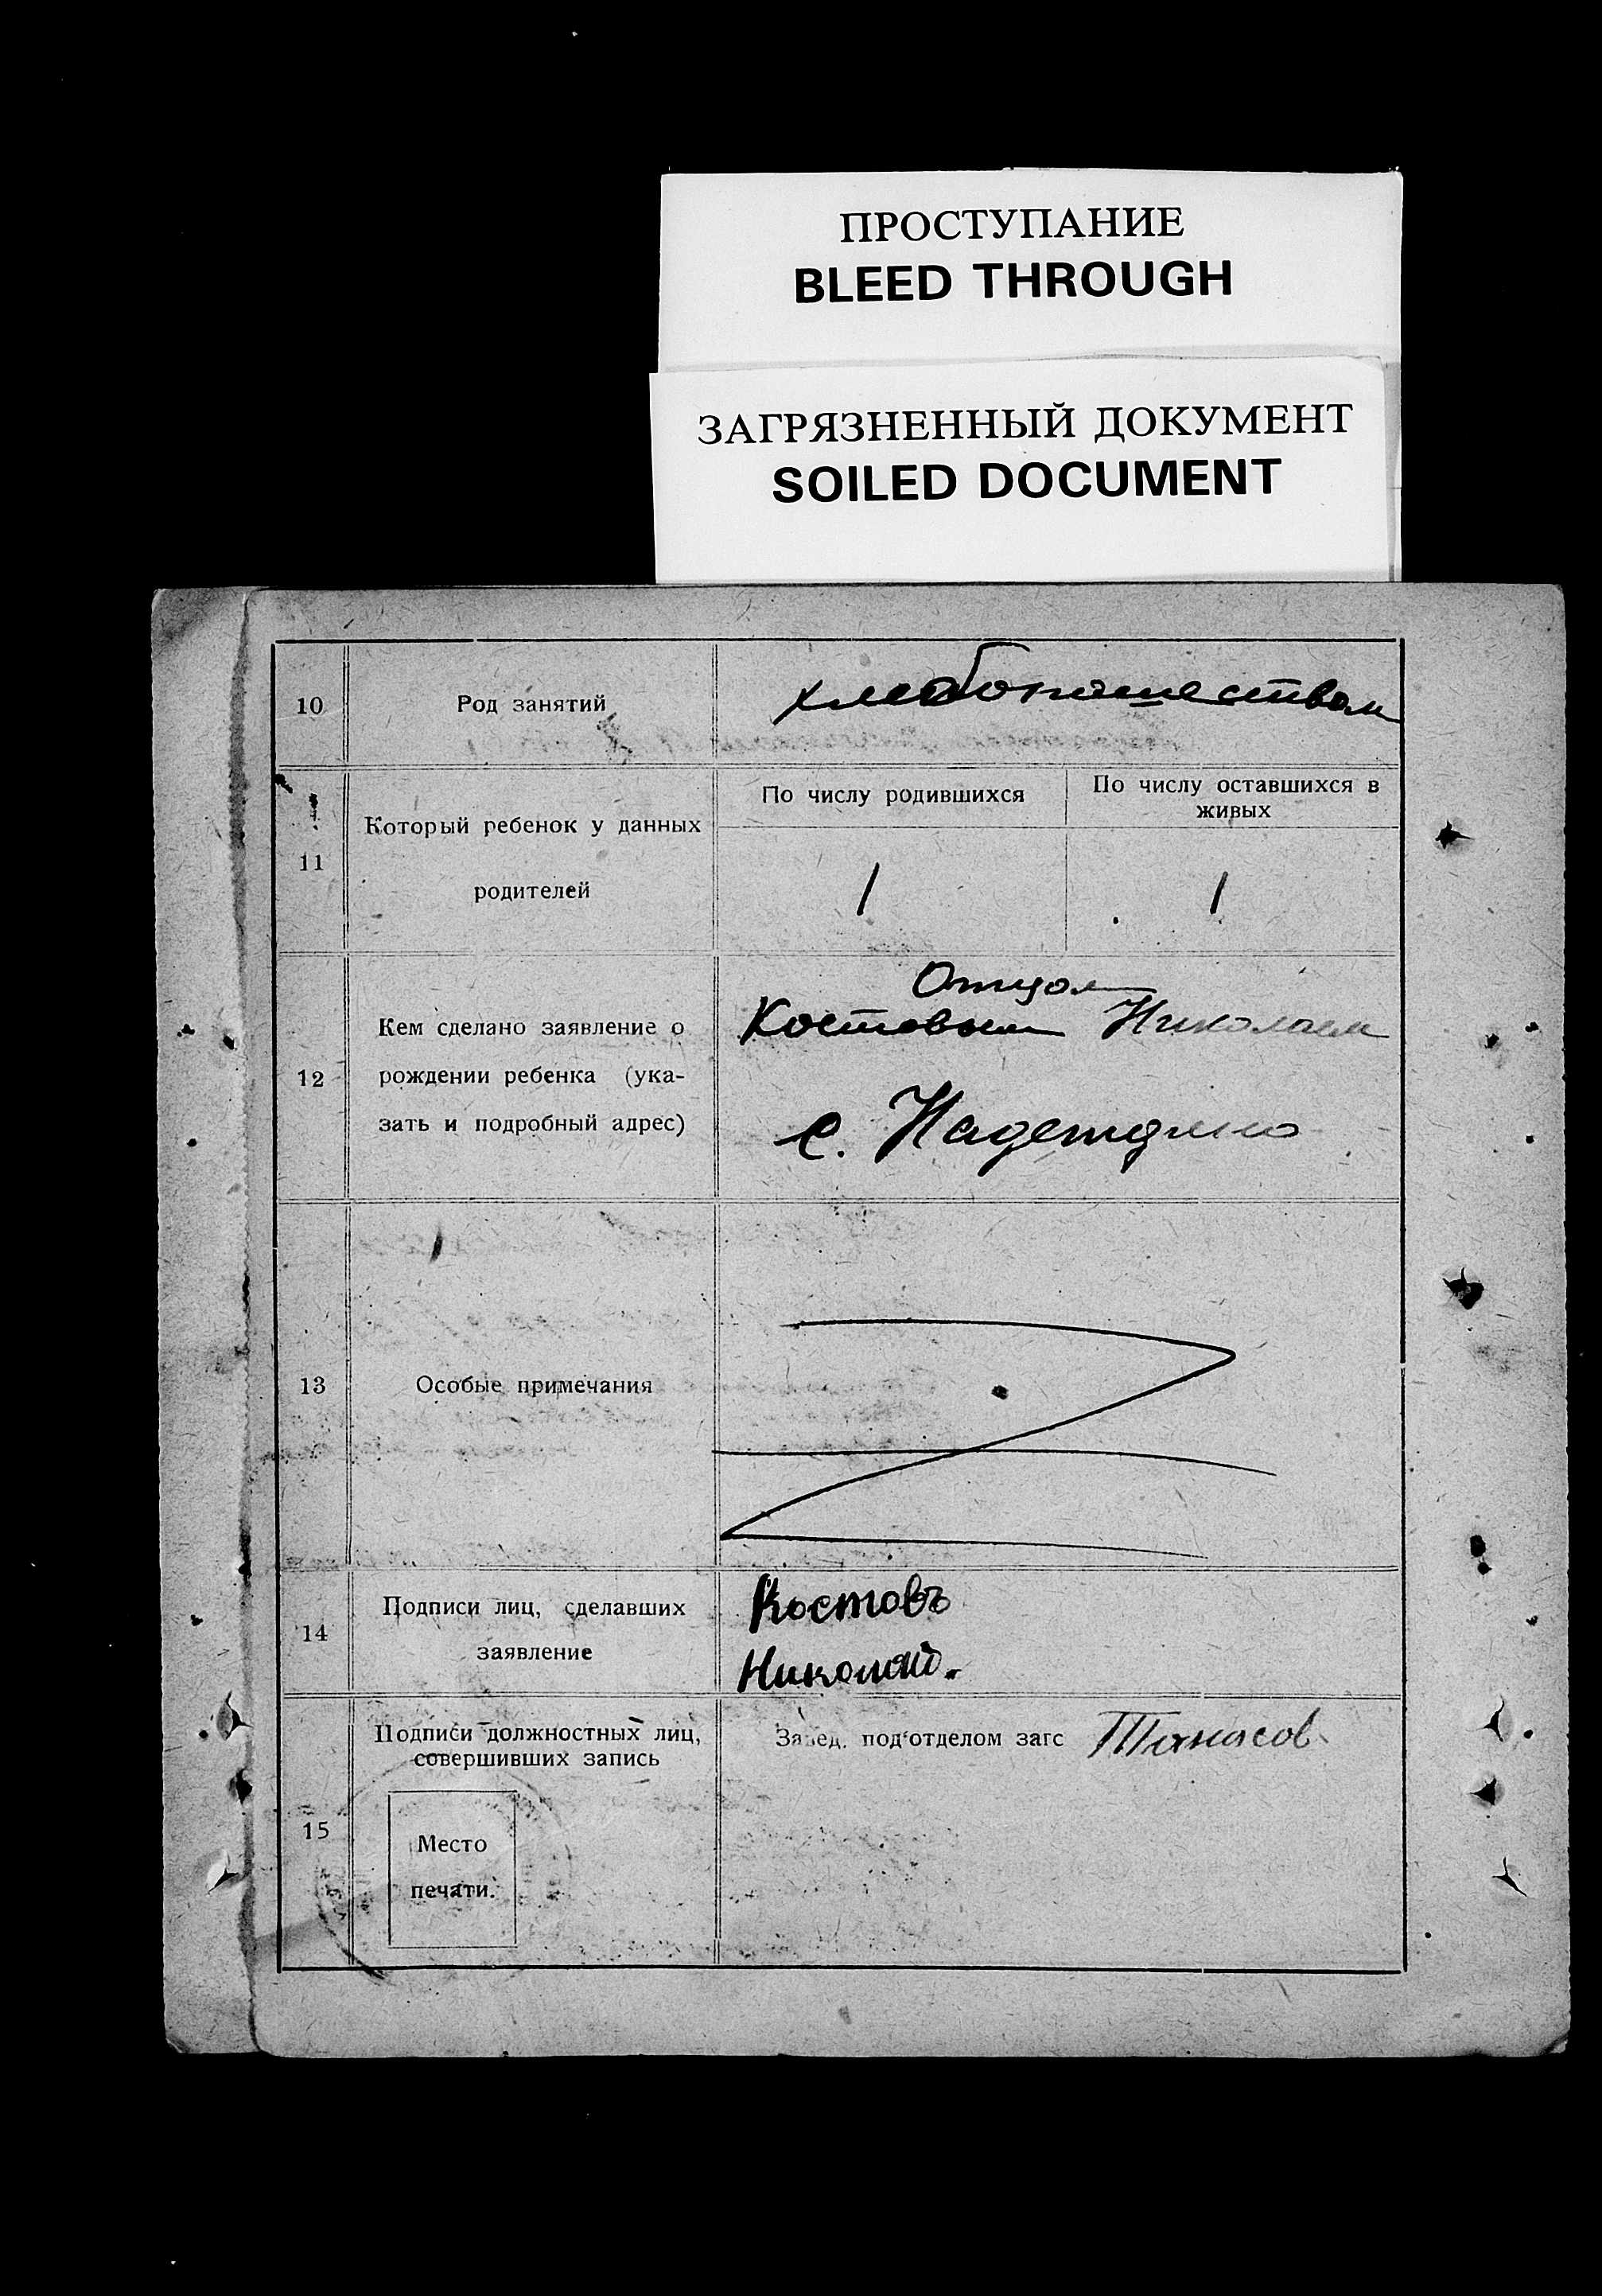 ПРОСТУПАНИЕ
BLEED THROUGH
ЗАГРЯЗНЕННЫЙ ДОКУМЕНТ
SOILED DOCUMENT
10 Род занятий хлебопашеством
11 Который ребенок у данных
родителей
По числу родившихся
По числу оставшихся в
живых
1 1
12 Кем сделано заявление о
рождении ребенка (ука-
зать и подробный адрес)
Отцом
Костовым Николаем
с. Надеждино
13 Особые примечания
14 Подписи лиц, сделавших
заявление
Костовъ
Николай.
15 Подписи должностных лиц,
совершивших запись
Завед. под'отделом загс Танасов
Место
печати.